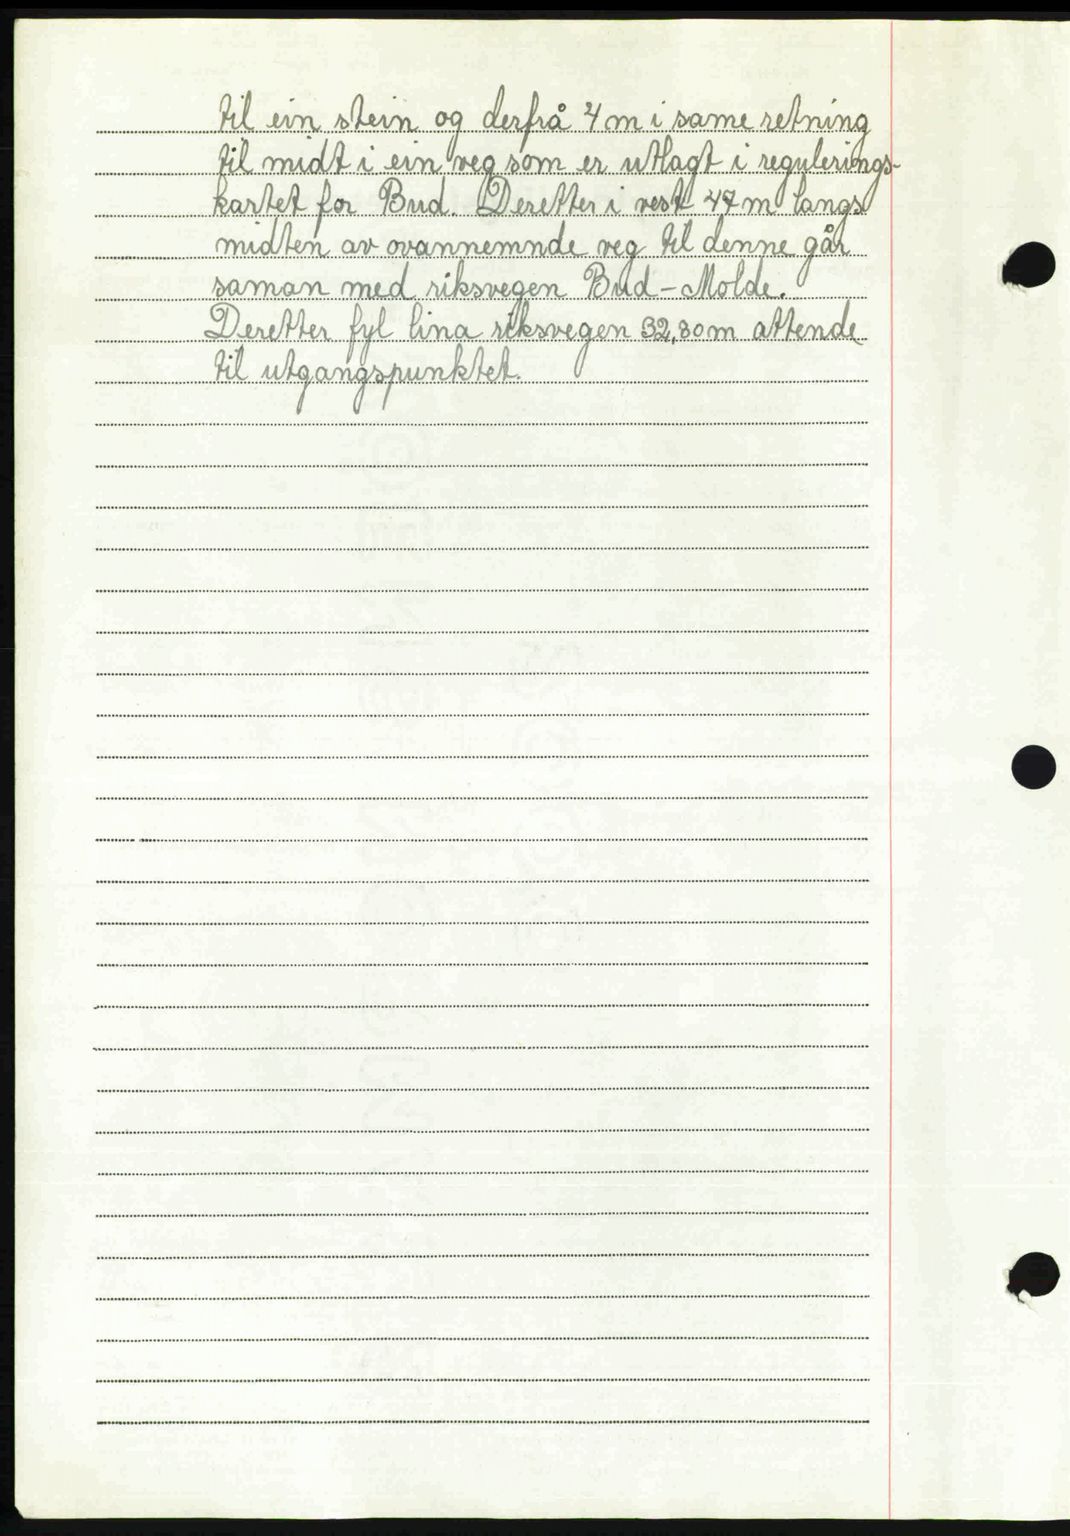 til ein stein og derfrå 4 m i same retning
til midt i ein veg som er utlagt i regulerings-
kartet for Bud. Deretter i vest 47 m langs
midten av ovannemnde veg til denne går
saman med riksvegen Bud - Molde.
Deretter fyl lina riksvegen 32,80 m attende
til utgangspunktet.